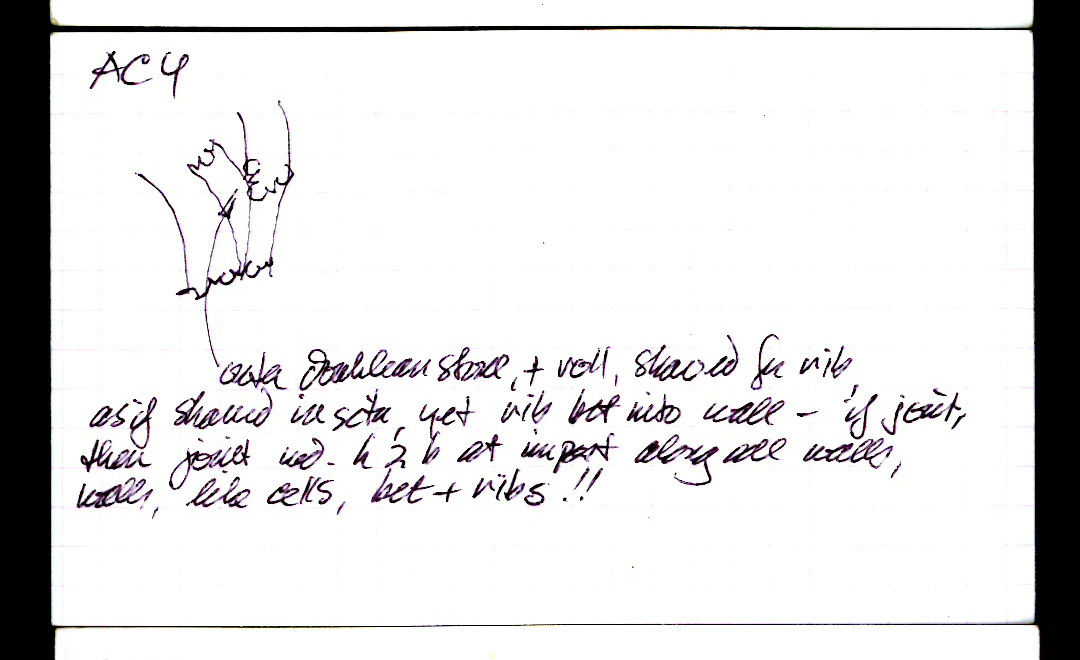 AC4
+ roll, shaved for rib,
as if shaved in situ, yet rib bet into wall – if joint,
then joint wd. h b at impost along all walls,
walls, like cells, bet + ribs!!